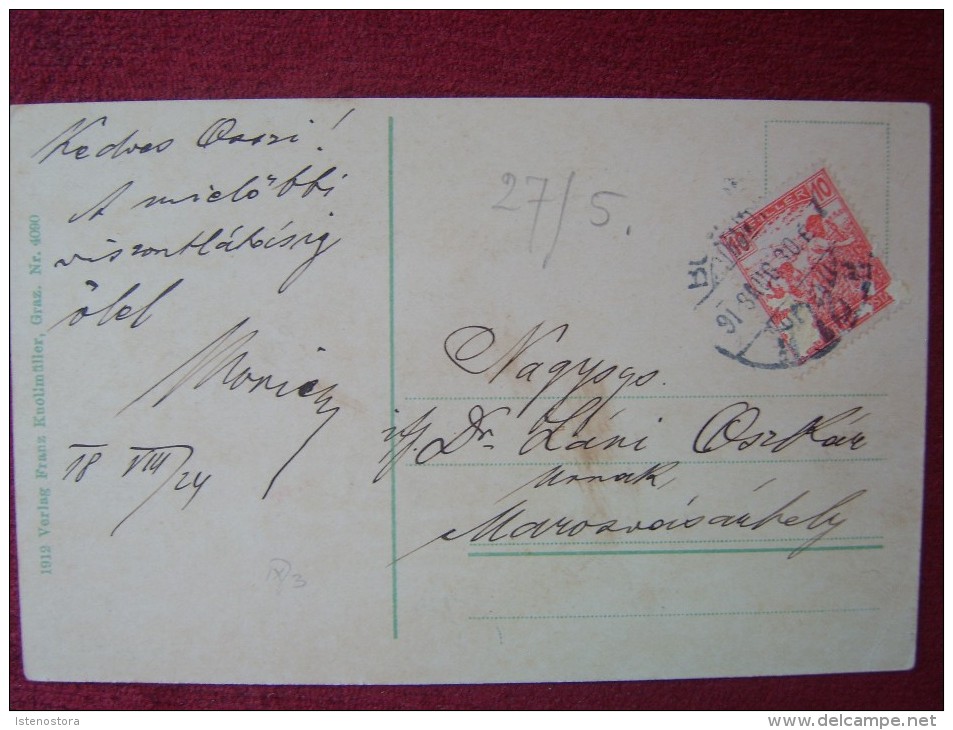 Kedves Osszi!
A mielőbbi
viszontlátásig
ölel
Moricz
18 VIII/24
1912 Verlag Franz Knollmüller, Graz. Nr. 4090
27/5.
10
FILLER
Nagysgs.
ifj. Dr. Láni Oszkár
urnak
Marosvásárhely
3
Istenostora
www.delcampe.net